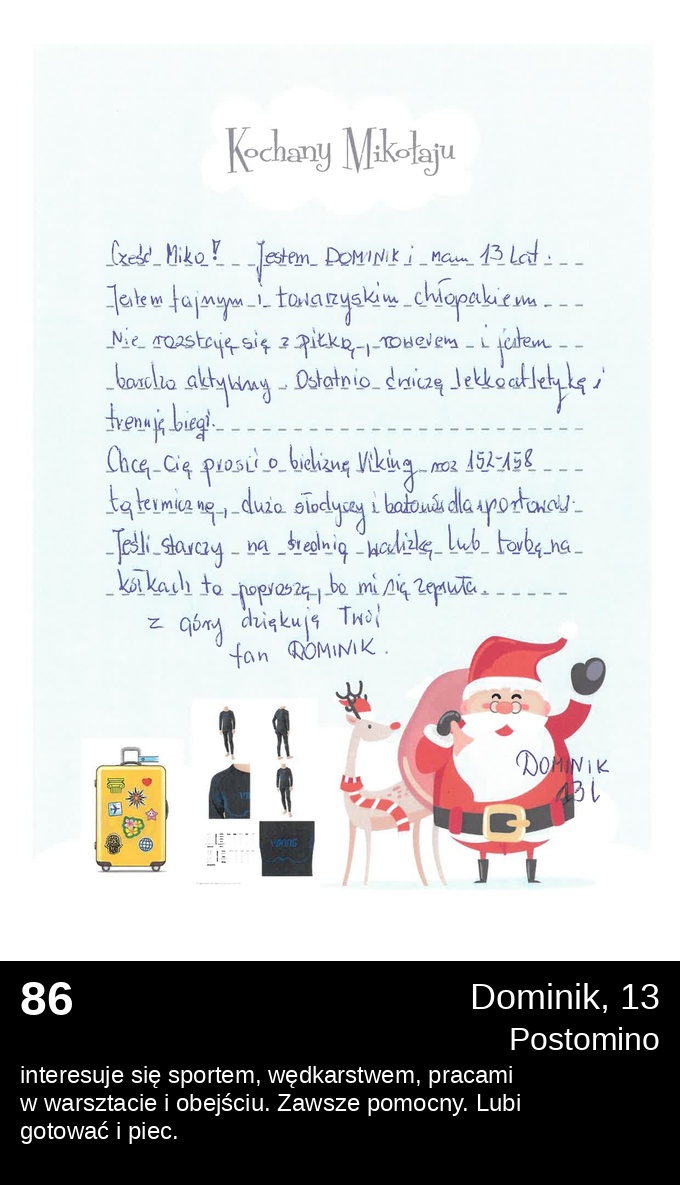 Kochany Mikołaju
Cześć Miko! Jestem DOMINIK i mam 13 lat.
Jestem fajnym i towaryskim chłopakiem.
Nie rozstaję się z piłką, rowerem i jestem
bardzo aktywny. Ostatnio ćwiczę lekkoatletykę i
trenuję biegi.
Chcę Cię prosić o bieliznę Viking roz 152-158
tą termiczną, dużo słodyczy i batonów dla sportowców.
Jeśli starczy na średnią walizkę lub torbę na
kółkach to poproszę, bo mi się zepsuła.
z góry dziękuję Twój
fan DOMINIK.
VIKING
DOMINIK
13 l
86
Dominik, 13
Postomino
interesuje się sportem, wędkarstwem, pracami
w warsztacie i obejściu. Zawsze pomocny. Lubi
gotować i piec.